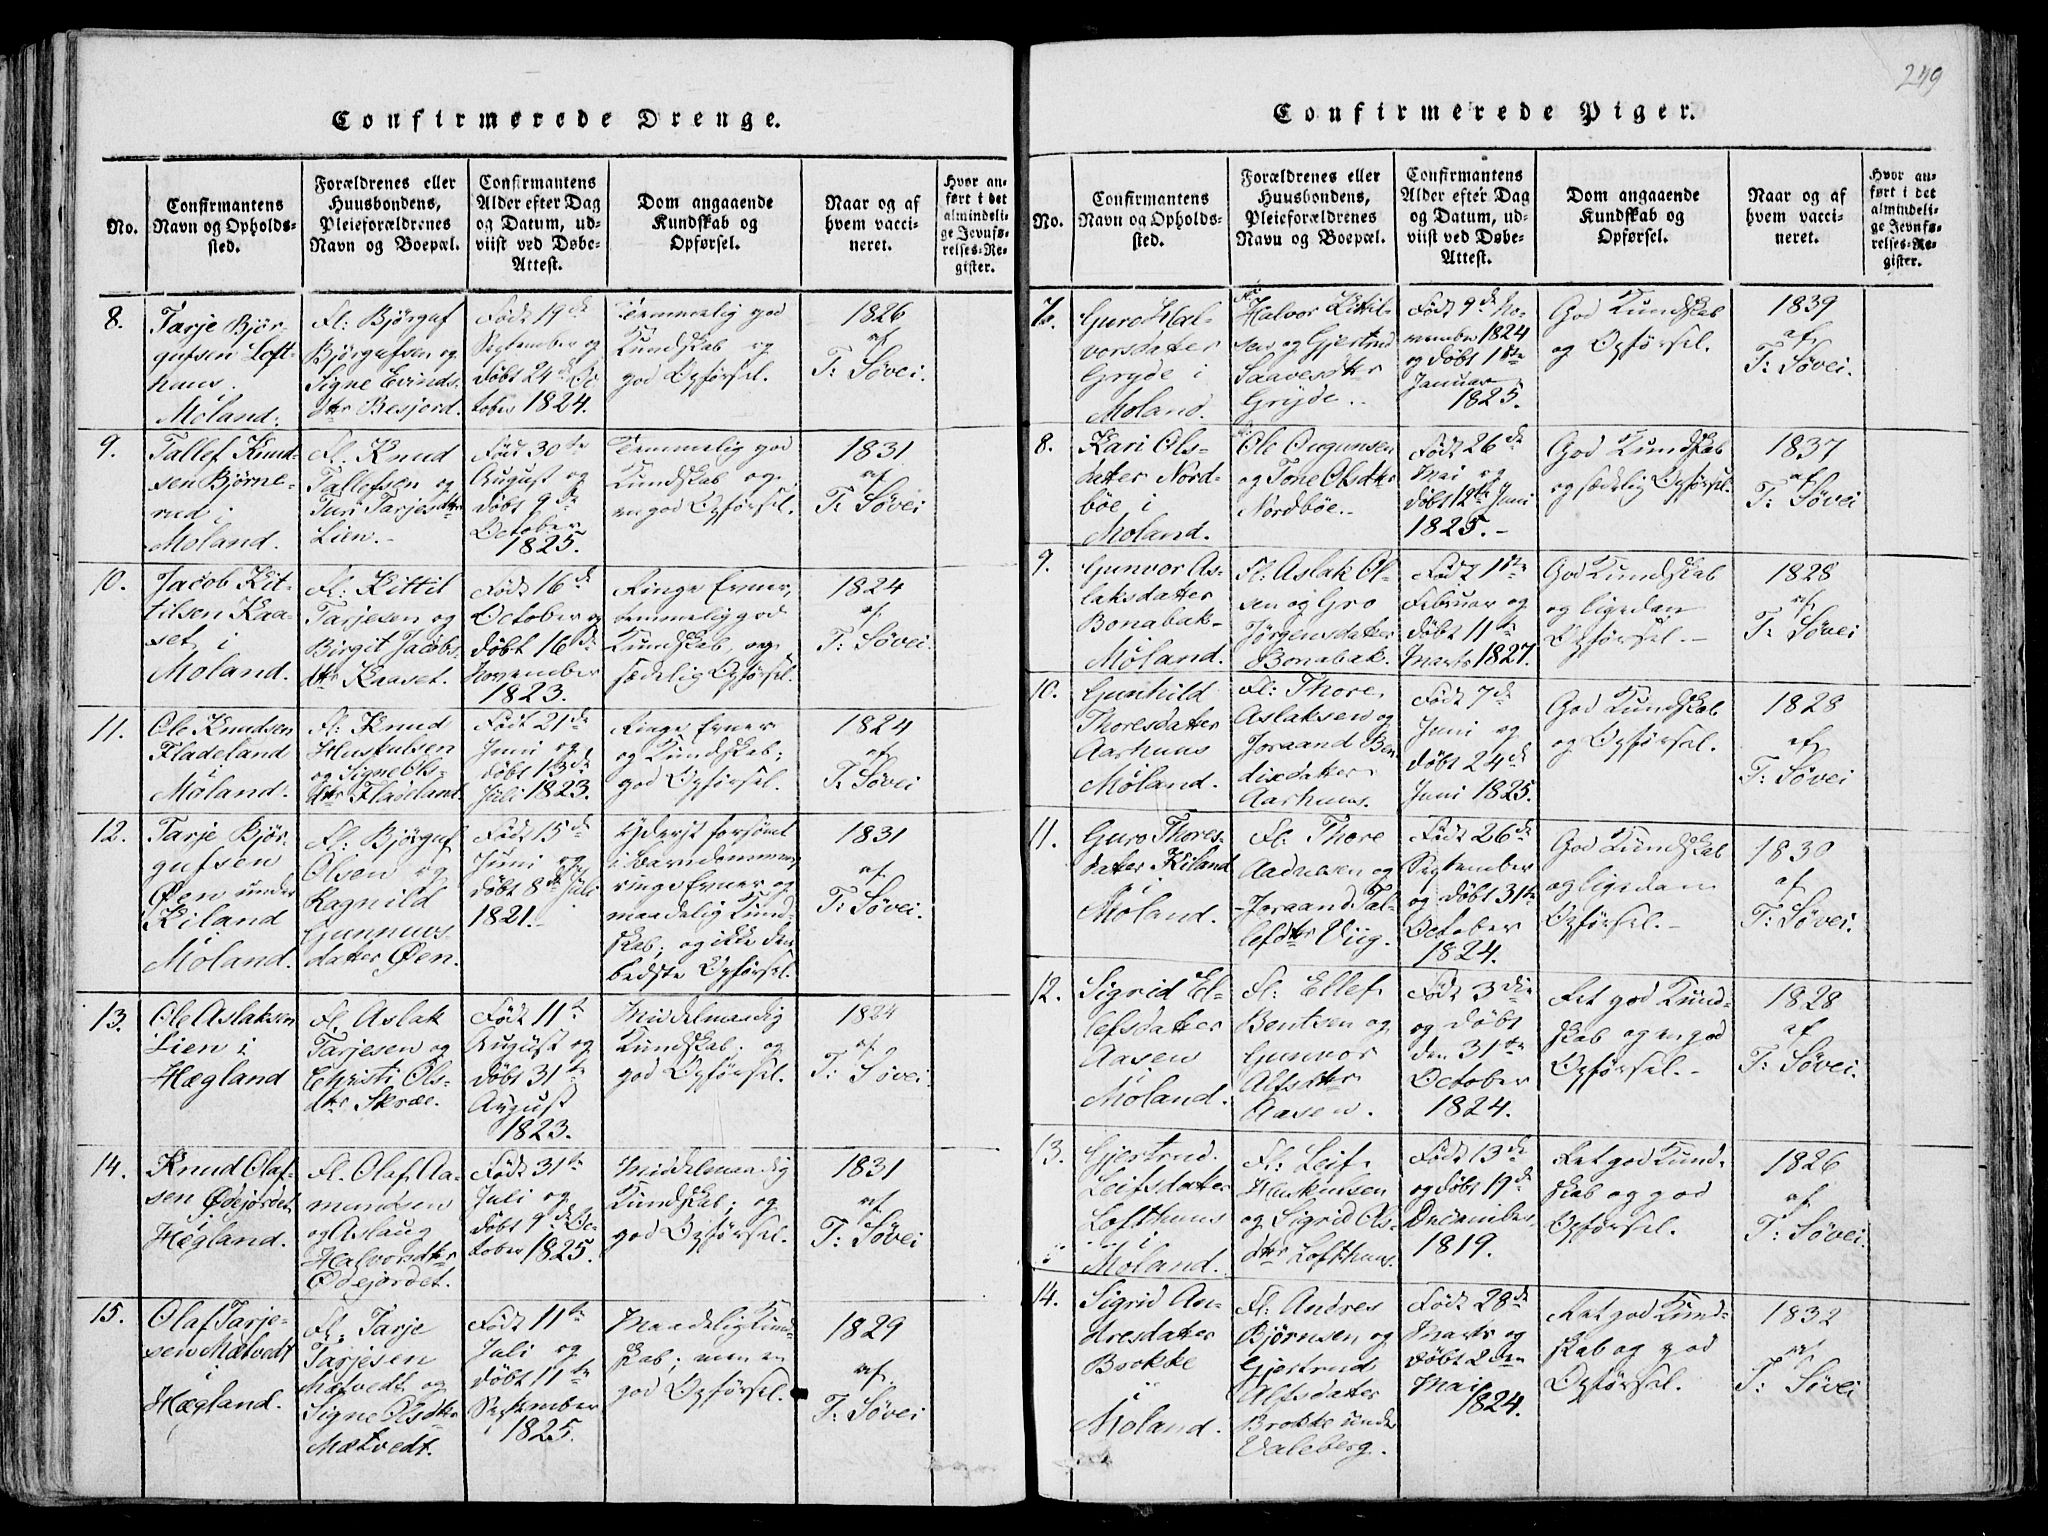 249
Confirmerede Drenge.
No.
Confirmantens
Navn og Opholds-
sted.
Forældrenes eller
Huusbondens,
Pleieforældrenes
Navn og Boepæl.
Confirmantens
Alder efter Dag
og Datum, ud-
viist ved Døbe-
Attest.
Dom angaaende
Kundskab og
Opførsel.
Naar og af
hvem vacci-
neret.
Hvor an-
ført i det
almindeli-
ge Jevnfø-
relses-Re-
gister.
8.
Tarje Bjør-
gufsen Loft-
huus.
Moland.
Fl: Bjørguf
Bjørgufsen og
Signe Evinds-
dtr Besjord.
Født 19de
September og
døbt 24de Oc-
tober 1824.
Temmelig god
Kundskab og
god Opførsel.
1826
af
T: Søvei.
9.
Tallef Knud-
sen Bjørne-
rud i
Moland.
Fl. Knud
Tallefsen og
Turi Tarjesdtr
Lien.-
Fød 30te
August og
døbt 9de
October
1825.
Temmelig god
Kundskab og
en god Opførsel.
1831
af
T: Søvei
10.
Jacob Kit-
tilsen Kaa-
set i
Moland.
Fl: Kittil
Tarjesen og
Birgit Jacobs-
dtr Kaaset.
Født 16de
October og
døbt 16de
November
1823.
Ringe Evner,
temmelig god
Kundskab, og
sædelig Opførsel.
1824
af
T: Søvei.
11.
Ole Knudsen
Fladeland
i
Moland.
Fl: Knud
Huskulsen
og Signe Ols-
dtr Fladeland.
Født 21de
Juni og
døbt 13de
Juli 1823.
Ringe Evner
og Kundskab;
god Opførsel.
1824
af
T: Søvei
12.
Tarje Bjør-
gufsen
Øen under
Kiland
Moland.
Fl: Bjørguf
Olsen og
Ragnild
Gunnuvs-
datter Øen.
Født 15de
Juni og
døbt 8de Juli
1821.-
Yderst forsømt
i Barndommen,
ringe Evner og
maadelig Kund-
skab; og ikke den
bedste Opførsel.
1831
af
T: Søvei.
13.
Ole Aslaksen
Lien i
Hægland
Fl. Aslak
Tarjesen og
Christi Ols-
dtr Skræe.
Født 11te
August og
døbt 31te
August
1823.
Middelmaadig
Kundskab; og
god Opførsel.
1824
af
T: Søvei.
14.
Knud Olaf-
sen Ødejordet
i
Hægland.
Fl. Olaf Aa-
mundsen
og Aslaug
Halvorsdtr
Ødejordet.
Født 31te
Juli og
døbt 9de Oc-
tober 1825.
Middelmaadig
Kundskab; og
god Opførsel.
1831
af
T: Søvei
15.
Olaf Tarje-
sen Mætvedt
i
Hægland.
Fl: Tarje
Tarjesen
Mætvedt og
Signe Olsdtr
Mætvedt.
Født 11te
Juli og
døbt 11te
September
1825.
Maadelig Kund-
skab; men en
god Opførsel.
1829
af
T: Søvei
Confirmerede Piger.
No.
Confirmantens
Navn og Opholds-
sted.
Forældrenes eller
Huusbondens,
Pleieforældrenes
Navn og Boepæl.
Confirmantens
Alder efter Dag
og Datum, ud-
viist ved Døbe-
Attest.
Dom angaaende
Kundskab og
Opførsel.
Naar og af
hvem vacci-
neret.
Hvor an-
ført i det
almindeli-
ge Jevnfø-
relses-Re-
gister.
7.
Guro Hal-
vorsdatter
Gryde i
Moland.
Fl:
Halvor Kittil-
sen og Gjertrud
Saavesdtr
Gryde.
Født 9de No-
vember 1824
og døbt 1ste
Januar
1825.
God Kundskab
og Opførsel.
1839
af
T: Søvei.
8.
Kari Ols-
datter Nord-
bøe i
Moland.
Ole Ougunsen
og Tone Olsdtr
Nordbøe.-
Født 26de
Mai og
døbt 12te Juni
1825.-
God Kundskab
og sædelig Opførsel.
1837
af
T: Søvei
9.
Gunvor As-
laksdatter
Bonabak-
Moland.
Fl: Aslak Ol-
sen og Gro
Jørgensdatter
Bonabak.
Født 1ste
Februar og
døbt 11te
Marts 1827.
God Kundskab
og ligedan
Opførsel.-
1828
af
T: Søvei
10.
Gunhild
Thoresdatter
Aarhuus
Moland.
Fl: Thore
Aslaksen og
Joraand Ben-
dixdatter
Aarhuus.
Født 7de
Juni og
døbt 24de
Juni 1825.
God Kundskab
og Opførsel.
1828
af
T: Søvei
11.
Guro Thores-
datter Kiland
i
Moland.
Fl. Thore
Aadnesen og
Joraand Tal-
lefdtr Viig.
Født 26de
September
og døbt 31te
October
1824.
God Kundskab
og ligedan
Opførsel.-
1830
af
T: Søvei.
12.
Sigrid El-
lefsdatter
Aasen
Moland.
Fl: Ellef
Bentsen og
Gunvor
Alfsdtr
Aasen.
Født 3die
og døbt
den 31te
October
1824.
Ret god Kund-
skab og en god
Opførsel.-
1828
af
T: Søvei.
13.
Gjertrud
Leifsdatter
Lofthuus
i
Moland.
Fl: Leif
Huskulsen
og Sigrid As-
dtr Lofthuus.
Født 13de
og døbt 19de
December
1819.
Ret god Kund-
skab og god
Opførsel.
1826
af
T: Søvei.
14.
Sigrid An-
dresdatter
Brokke
i
Moland.
Fl: Andres
Bjørnsen og
Gjertrud
Alfsdatter
Brokke under
Valeberg.
Født 28de
Marts og
døbt 2den
Mai
1824.
Ret god Kund-
skab og god
Opførsel.
1832
af
T: Søvei